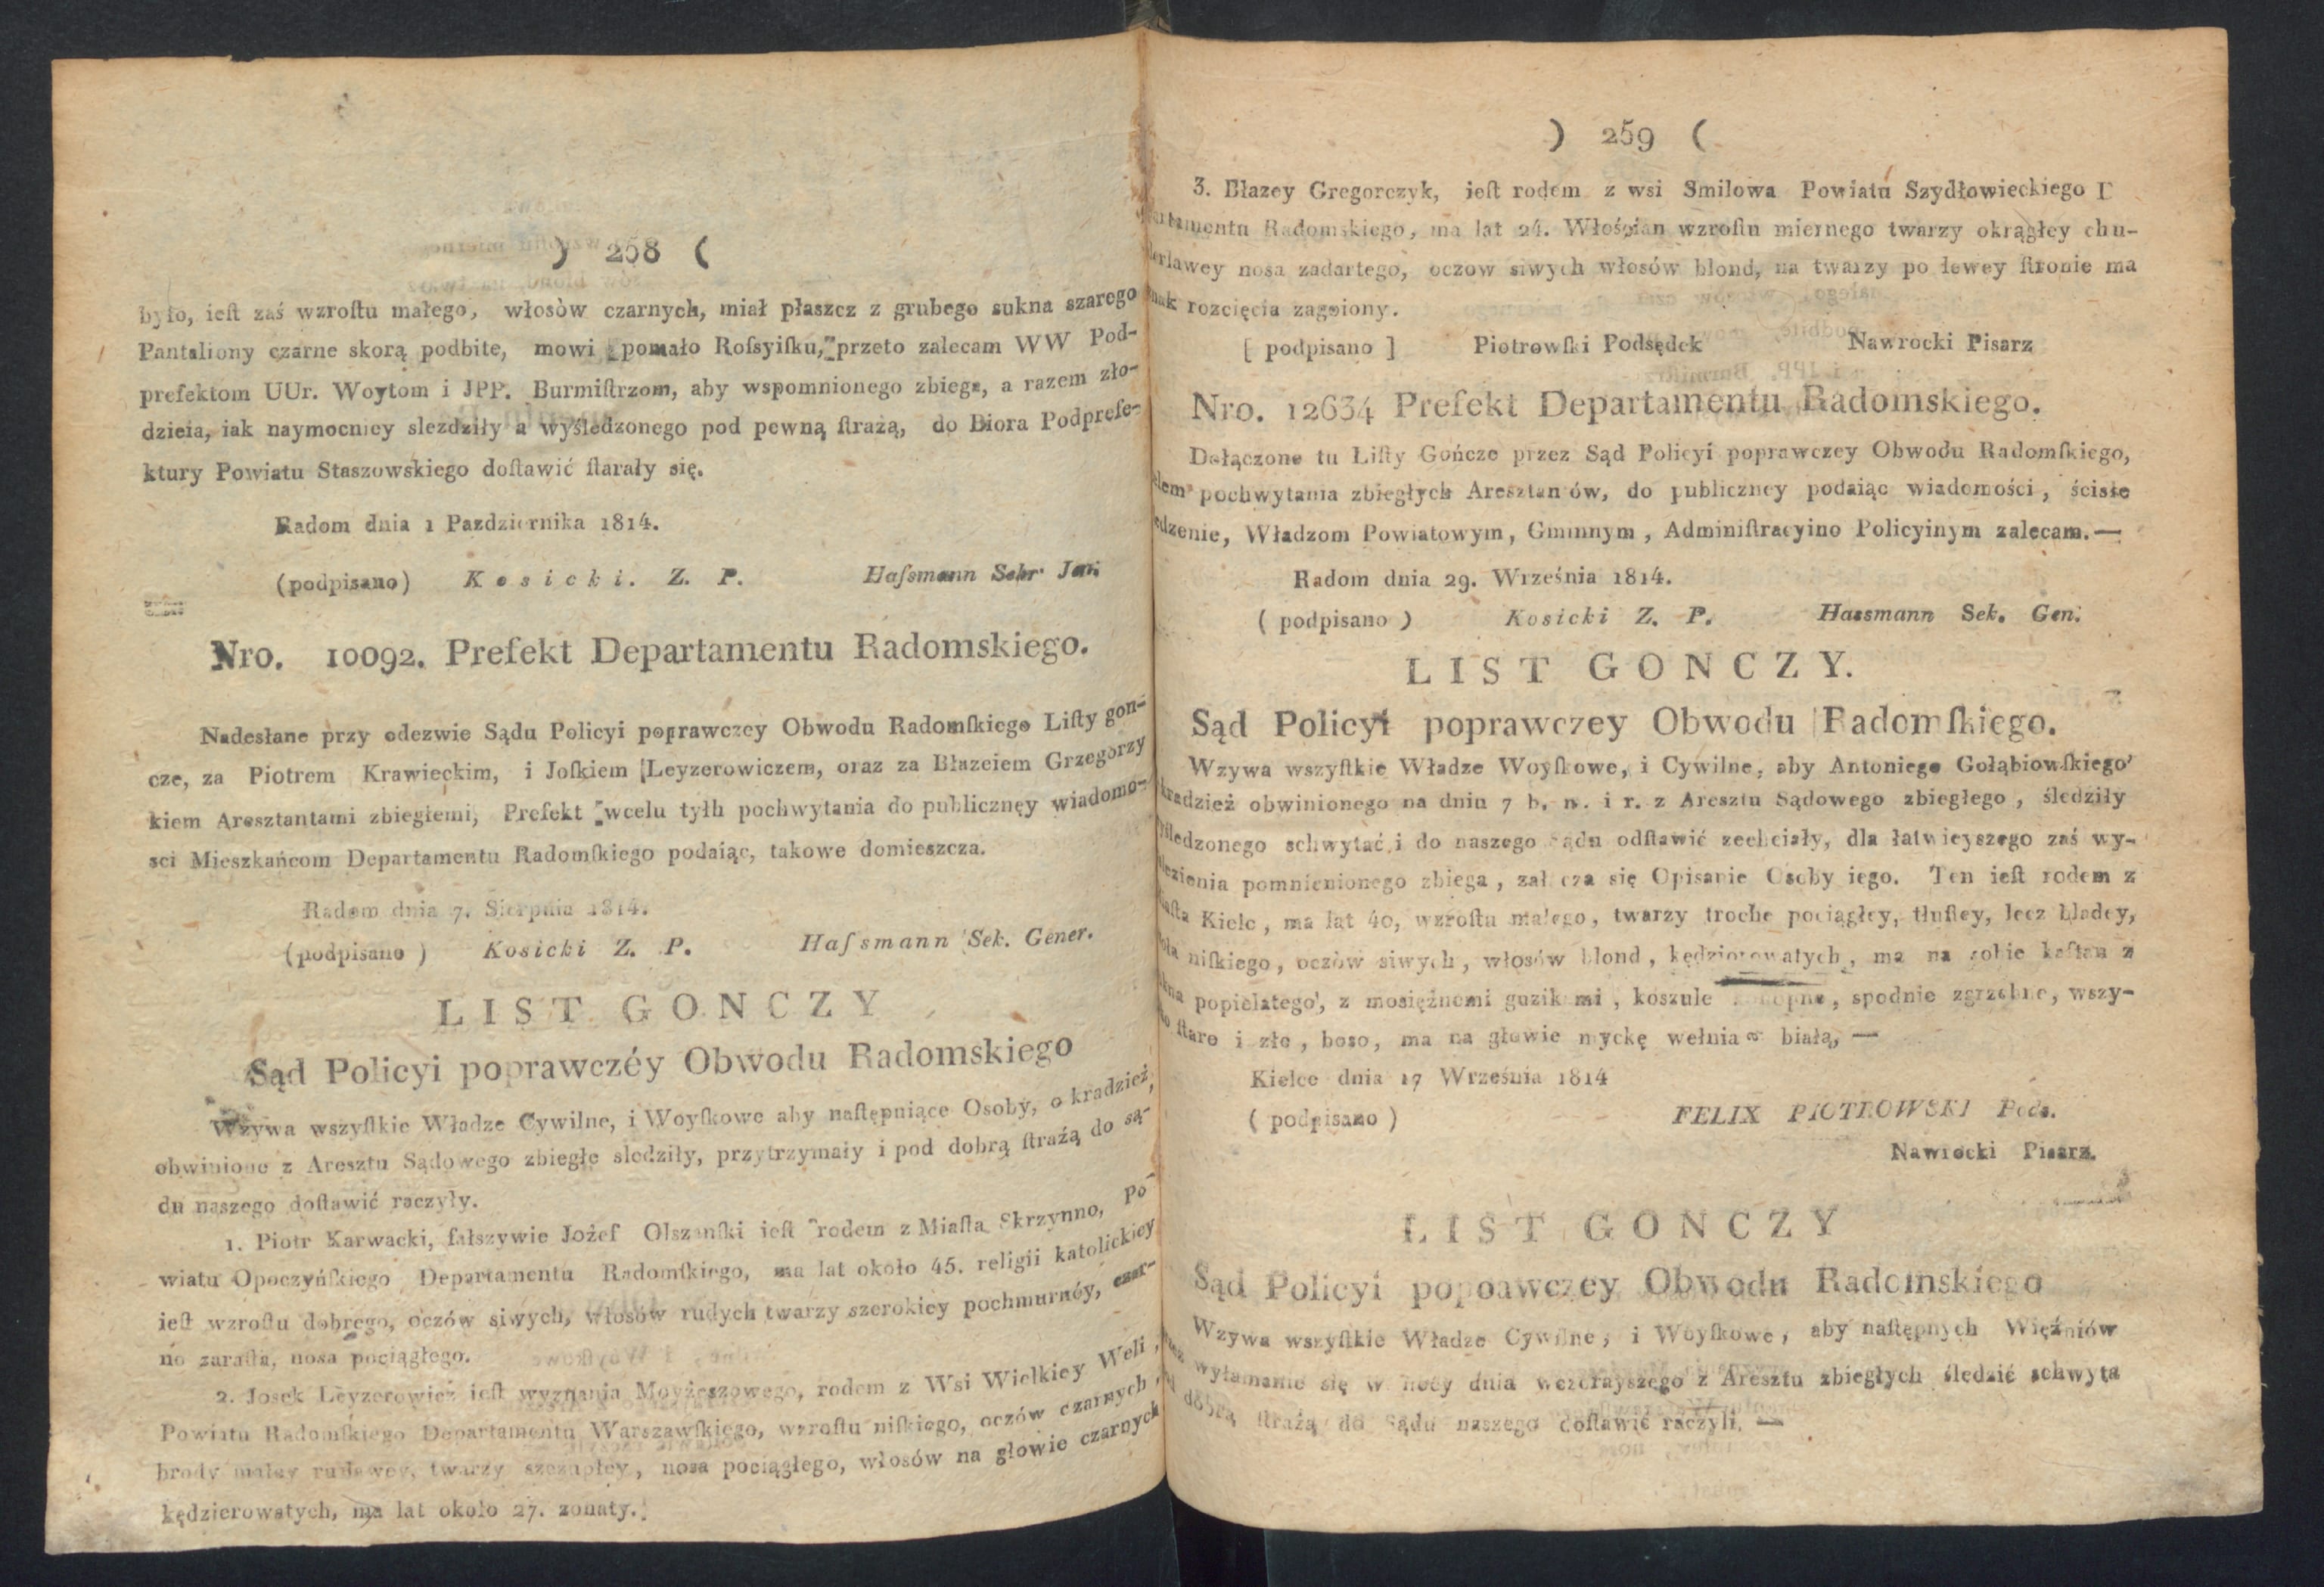 ) 258 (
było, iest zaś wzrostu małego, włosòw czarnych, miał płaszcz z grubego sukna szarego
Pantaliony czarne skorą podbite, mowi pomało Rossyisku, przeto zalecam WW Pod-
prefektom UUr. Woytom i JPP. Burmistrzom, aby wspomnionego zbiega, a razem zło-
dzieia, iak naymocniey slezdziły a wyśledzonego pod pewną strażą, do Biora Podprefe-
ktury Powiatu Staszowskiego dostawić starały się.
Radom dnia 1 Pazdziernika 1814.
(podpisano) Kosicki. Z. P. Hassmann Sekr
Nro. 10092. Prefekt Departamentu Radomskiego.
Nadesłane przy odezwie Sądu Policyi poprawczey Obwodu Radomskiego Listy gon-
cze, za Piotrem Krawieckim, i Joskiem Leyzerowiczem, oraz za Błazeiem Grzegorzy
kiem Aresztantami zbiegłemi, Prefekt wcelu tyłh pochwytania do publicznęy wiadomo-
sci Mieszkańcom Departamentu Radomskiego podaiąc, takowe domieszcza.
Radom dnia 7. Sierpnia 1814.
(podpisano ) Kosicki Z. P. Hassmann Sek. Gener.
LIST GONCZY
Sąd Policyi poprawczéy Obwodu Radomskiego
Wzywa wszystkie Władze Cywilne, i Woyskowe aby następuiące Osoby, o kradzież,
obwinione z Aresztu Sądowego zbiegłe sledziły, przytrzymały i pod dobrą strażą do są-
du naszego dostawić raczyły.
1. Piotr Karwacki, fałszywie Jożef Olszanski iest rodem z Miasta Skrzynno, Po
wiatu Opoczyńskiego Departamentu Radomskiego, ma lat około 45. religii katolickiey
iest wzrostu dobrego, oczów siwych, włosów rudych twarzy szerokiey pochmurnéy, czar-
no zarasta, nosa pociągłego.
2. Josek Leyzerowież iest wyznania Moyżeszowego, rodem z Wsi Wielkiey Weli,
Powiatu Radomskiego Departamentu Warszawskiego, wzrostu niskiego, oczów czarnych,
brody małey rudawey, twarzy szczupłey, nosa pociągłego, włosów na głowie czarnych
kędzierowatych, ma lat około 27. zonaty.
) 259 (
3. Błazey Gregorczyk, iest rodem z wsi Smilowa Powiatu Szydłowieckiego D
artamentu Radomskiego, ma lat 24. Włościan wzrostu miernego twarzy okrągłey chu-
derlawey nosa zadartego, oczow siwych włosów blond, na twarzy po lewey stronie ma
znak rozcięcia zagoiony.
[ podpisano ] Piotrowski Podsędek Nawrocki Pisarz
Nro. 12634 Prefekt Departamentu Radomskiego.
Dołączone tu Listy Gończe przez Sąd Policyi poprawczey Obwodu Radomskiego,
elem pochwytania zbiegłych Aresztantów, do publiczney podaiąc wiadomości, ścisłe
edzenie, Władzom Powiatowym, Gminnym, Administracyino Policyinym zalecam.—
Radom dnia 29. Września 1814.
( podpisano ) Kosicki Z. P. Hassmann Sek. Gen.
LIST GONCZY.
Sąd Policyi poprawczey Obwodu Radomskiego.
Wzywa wszystkie Władze Woyskowe, i Cywilne, aby Antoniego Gołąbiowskiego
kradzież obwinionego na dniu 7 b. m. i r. z Aresztu Sądowego zbiegłego, śledziły
śledzonego schwytać i do naszego sądu odstawić zechciały, dla łatwieyszego zaś wy-
lezienia pomnienionego zbiega, załącza się Opisanie Osoby iego. Ten iest rodem z
iasta Kielc, ma lat 40, wzrostu małego, twarzy troche pociągłey, tłustey, lecz bladey,
niskiego, oczòw siwych, włosów blond, kędziorowatych, ma na sobie kaftan z
kna popielatego, z mosiężnemi guzikami, koszule konopne, spodnie zgrzebne, wszy-
ko stare i złe, boso, ma na głowie myckę wełnianą białą, —
Kielce dnia 17 Września 1814
( podpisano ) FELIX PIOTROWSKI Pods.
Nawrocki Pisarz.
LIST GONCZY
Sąd Policyi popoawczey Obwodu Radomskiego
Wzywa wszystkie Władze Cywilne, i Woyskowe, aby następnych Więźniów
wyłamanie się w nocy dnia wczorayszego z Aresztu zbiegłych śledzić schwyta
dobrą strażą do Sądu naszego dostawić raczyli. —